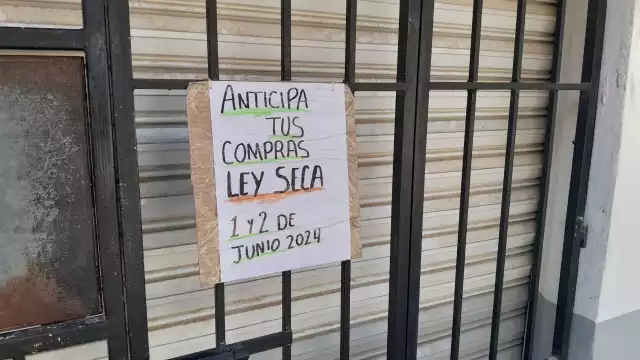 ANTICIPA
TUS
COMPRAS
LEY SECA
1 Y 2 DE
JUNIO 2024